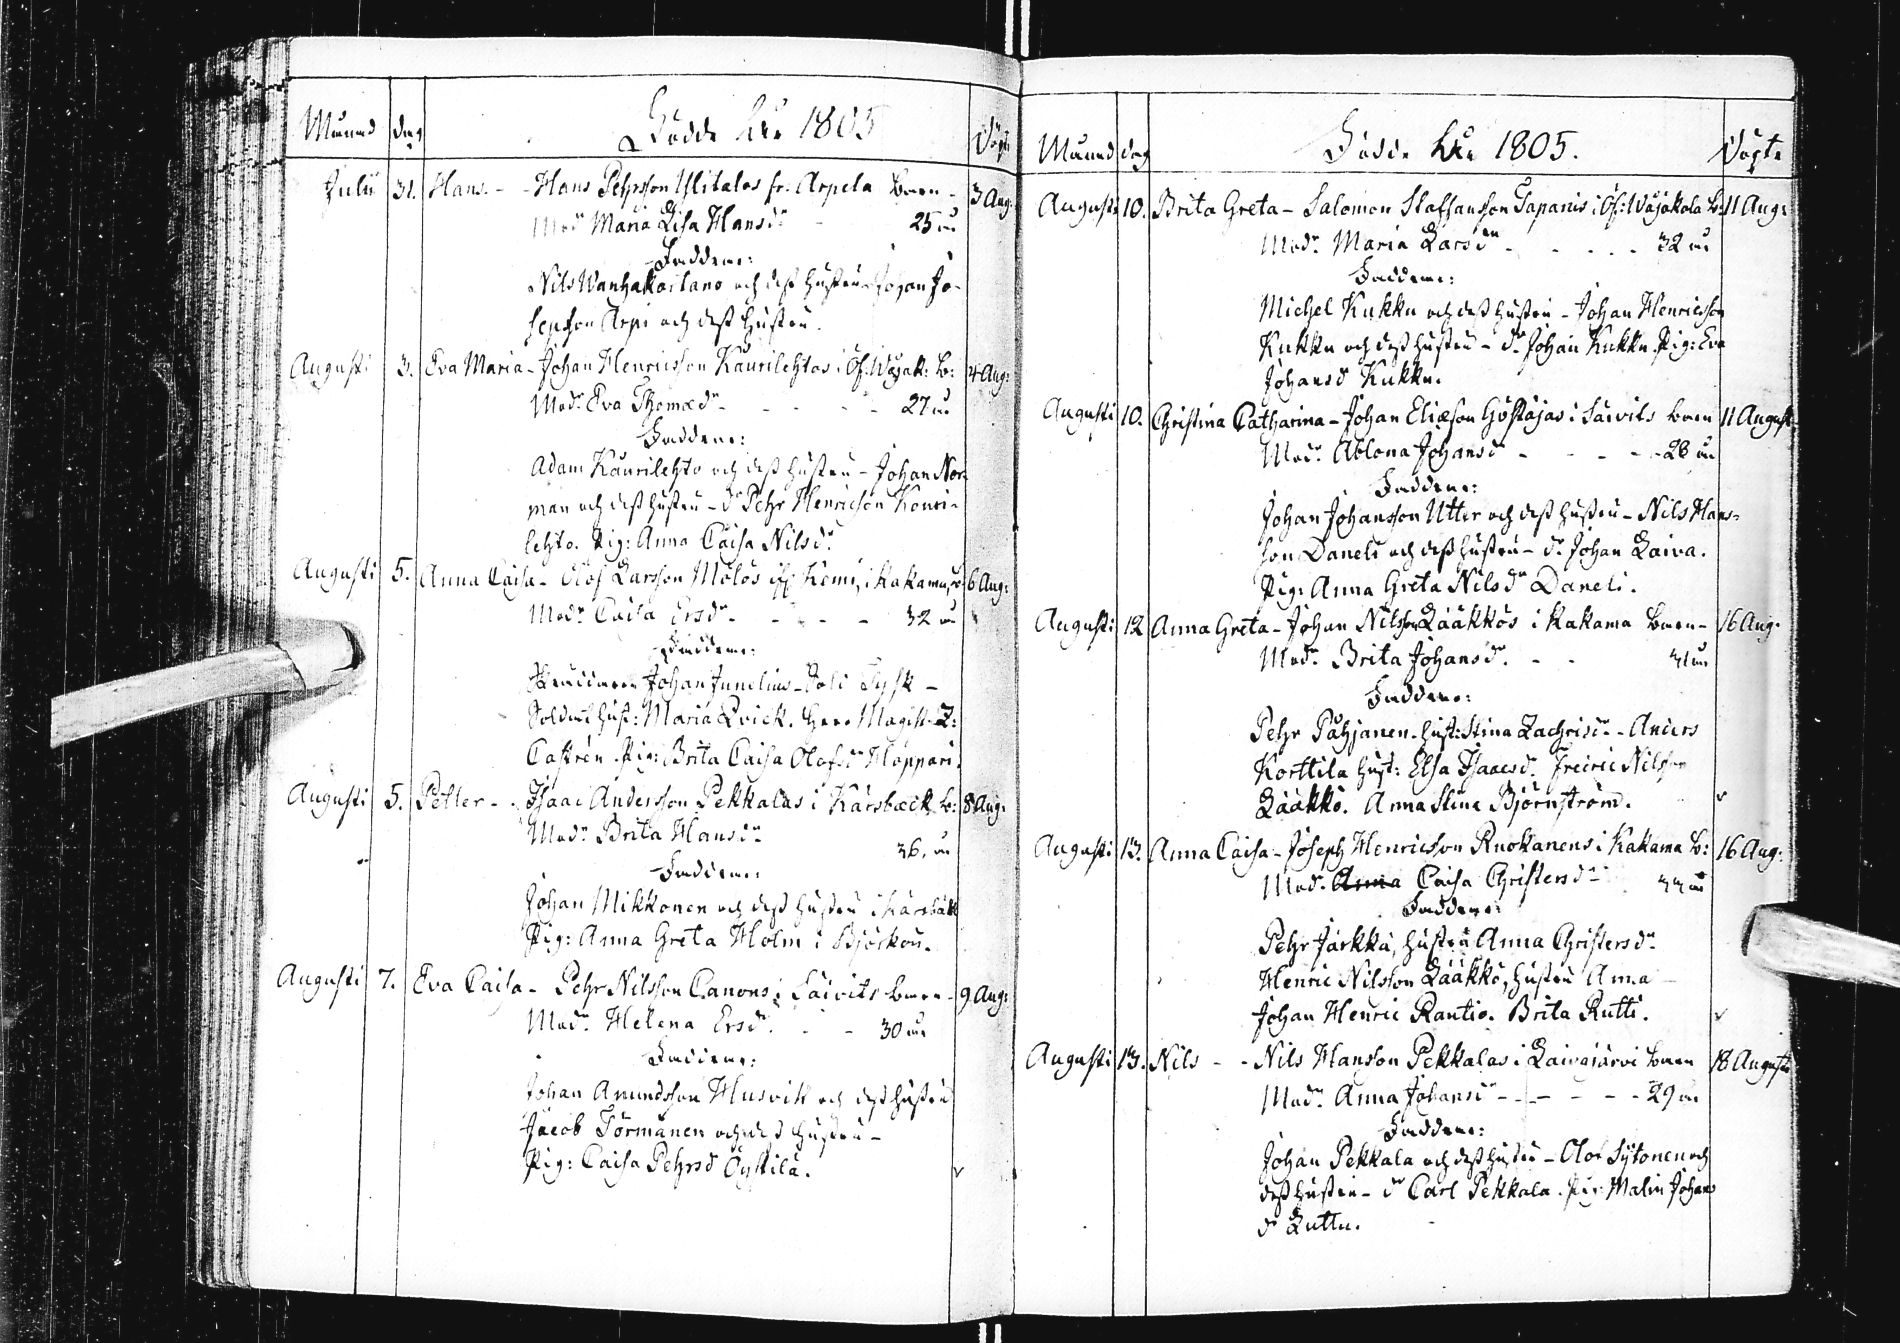 Månad dag Födde åhr 1805 Döpte
Julii 31. Hans - - Hans Pehrsson Ylitalos fr. Arpela barn - 3 Aug:
Modr Maria Lisa Hansdr 25 år
Faddrar:
Nils Wanhakoitano och dess hustru - Johan Jo-
sepsson Arpi och dess hustru.
Augusti 3. Eva Maria - Johan Henricsson Kaurilehtos i Öf. Wojak: b: 4 Aug:
Modr Eva Thomædr - - - - - 27 år
Faddrar:
Adam Kaurilehto och dess hustru - Johan Nor-
man och dess hustru - dr Pehr Henricson Kouri-
lehto. Pig: Anna Caisa Nilsdr
Augusti 5. Anna Caisa - Olof Larsson Mölös ifr. Kemi, i Kakama, b: 6 Aug:
Modr Caisa Ersdr - - - - 32 år
Faddrar:
Johan Junelius - Tysk -
Soldat hust: Maria Qvick. Herr Magist. Z:
Castrén. Pig: Brita Caisa Olofsdr Hoppari.
Augusti 5. Petter - - Isaac Andersson Pekkalas i Karsbäck b: 8 Aug:
Modr Brita Hansdr 36. år
Faddrar:
Johan Mikkonen och dess hustru i Karsbäck
Pig: Anna Greta Holm i Björkön.
Augusti 7. Eva Caisa - Pehr Nilsson Canons i Laivits barn - 9 Aug:
Modr Helena Ersdr - - 30 år
Faddrar:
Johan Amundsson Husvik och dess hustru
Jacob Törmänen och dess hustru -
Pig: Caisa Pehrsd Öystilä.
Månad dag Födde åhr 1805. Döpte
Augusti 10. Brita Greta - Salomon Staffansson Tapanis i Öf: Wojakala b: 11 Aug:
Modr Maria Larsdr - - - - - 32 år
Faddrar:
Michel Kukku och dess hustru - Johan Henricsson
Kukku och dess hustru - dr Johan Kukku. Pig: Eva
Johansd Kukku.
Augusti 10. Christina Catharina - Johan Eliæson Göstajas i Laivits barn 11 August
Modr Ablona Johansd - - - - 28 år
Faddrar:
Johan Johansson Utter och dess hustru - Nils Hans-
son Daneli och dess hustru - dr Johan Laiva.
Pig: Anna Greta Nilsdr Daneli.
Augusti 12 Anna Greta - Johan Nilsson Lääkkös i Kakama barn - 16 Aug:
Modr Brita Johansdr - - 31 år
Faddrar:
Pehr Pahjanen - hust: Stina Zachrisdr - Anders
Korttila hust: Elsa Isaacsd. Fredric Nilsson
Lääkkö. Anna Stina Björnström.
Augusti 13. Anna Caisa - Joseph Henricsson Ruokanens i Kakama b: 16 Aug:
Modr Anna Caisa Christersdr 33 år
Faddrar:
Pehr Jarkkä, hustru Anna Christersdr
Henric Nilsson Lääkkö, hustru Anna
Johan Henric Rantio. Brita Rutti.
Augusti 13. Nils - - Nils Hansson Pekkalas i Laivajärvi barn 18 August
Modr Anna Johansdr - - - - - 29 år
Faddrar:
Johan Pekkala och dess hustru - Olof Sytonen och
dess hustru - dr Carl Pekkala. Pig: Malin Johans
dr Luttu.